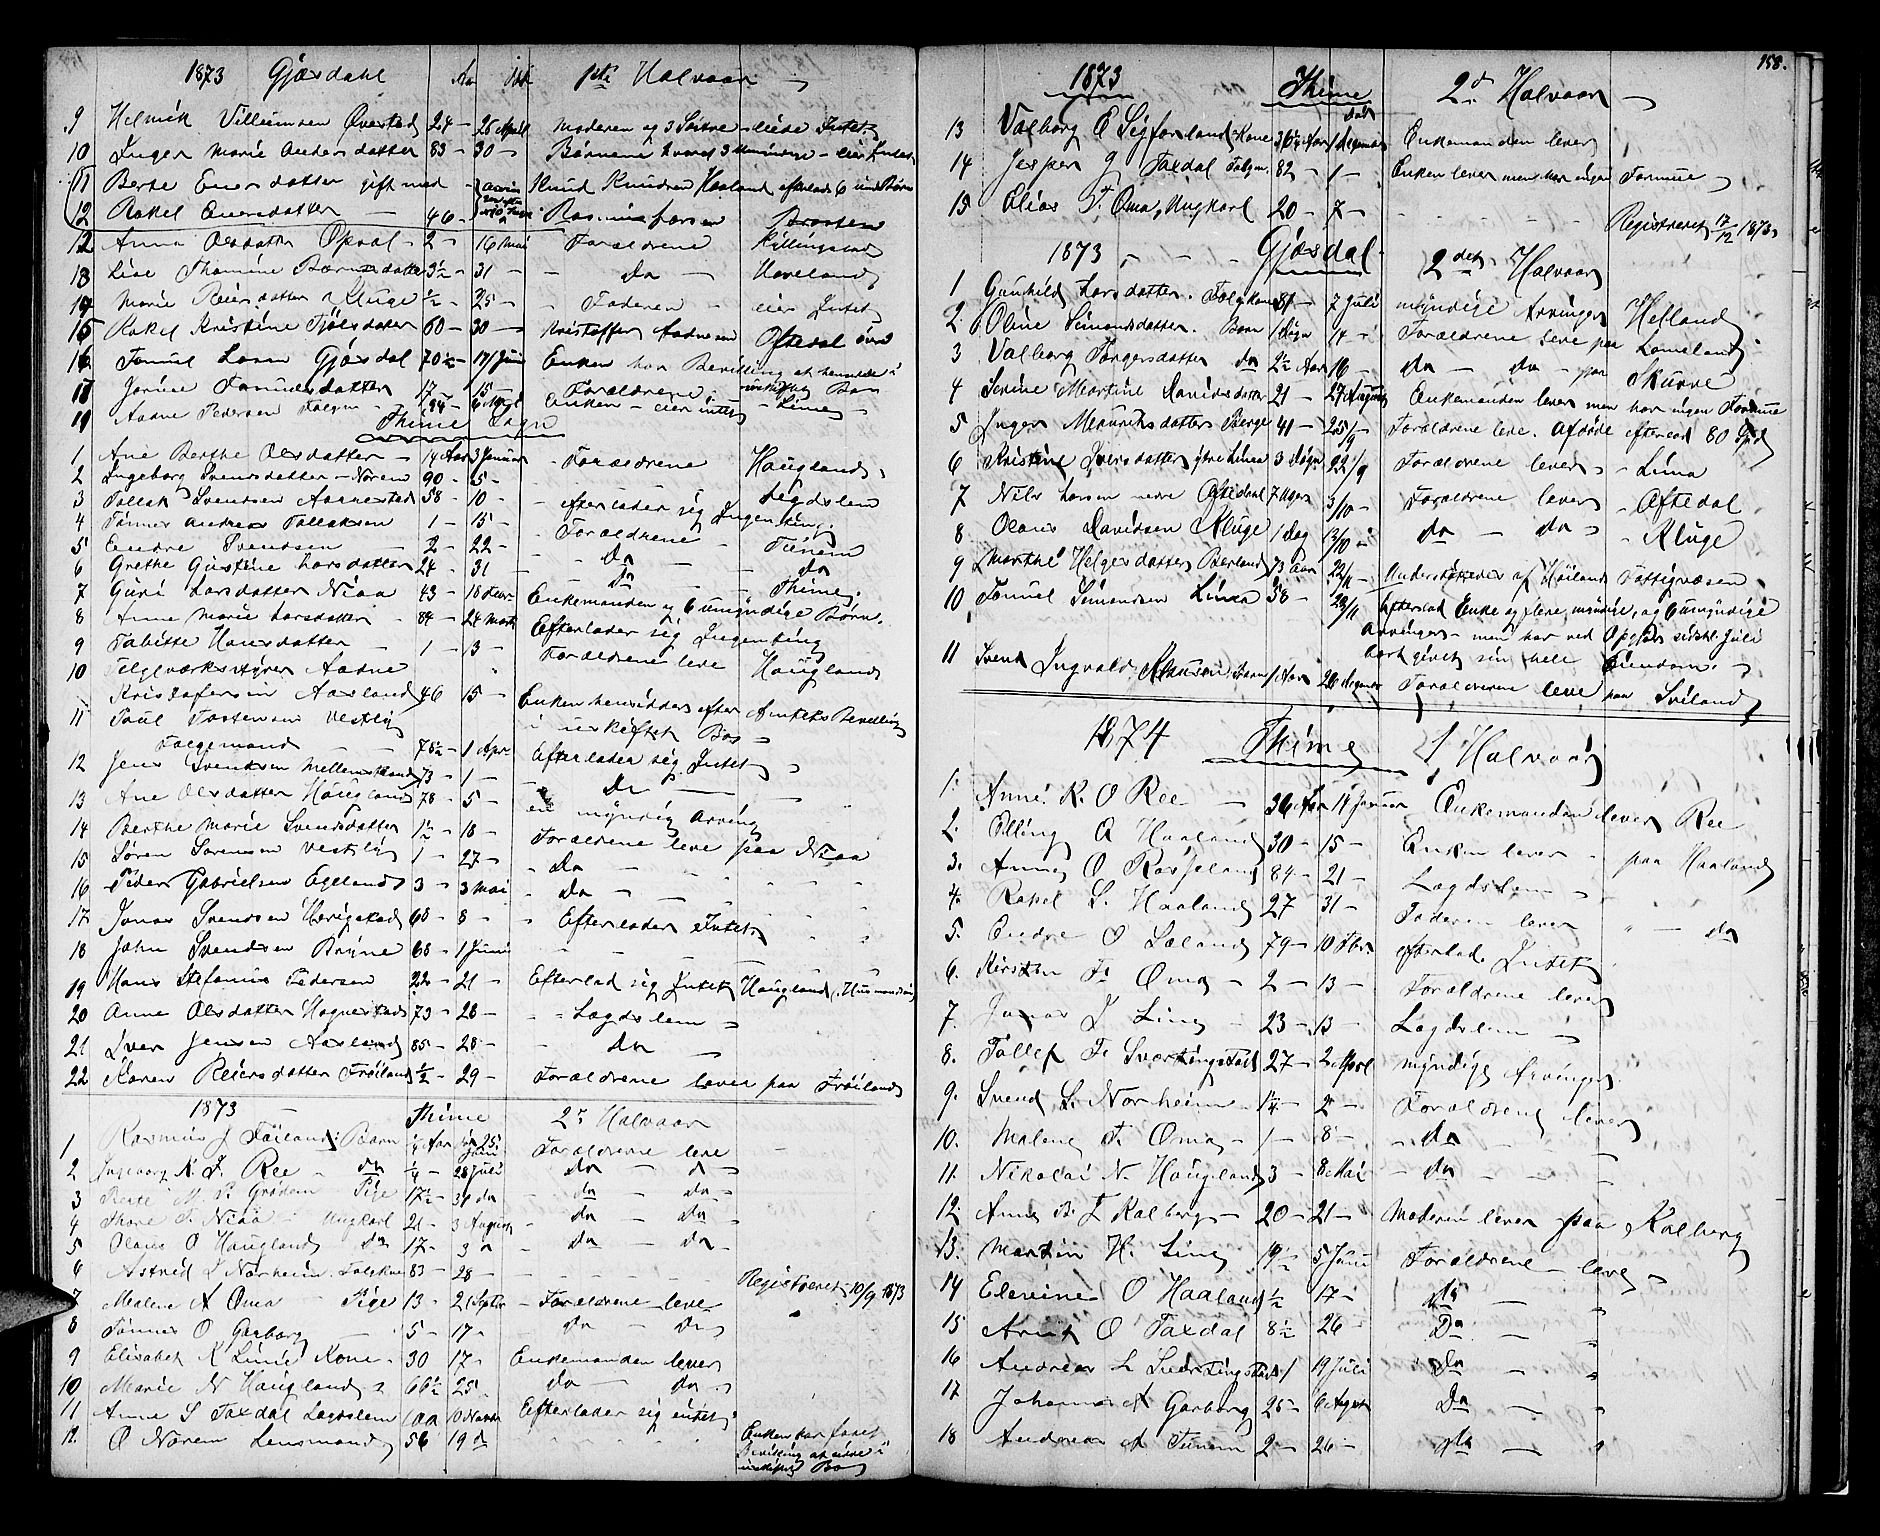 1873 Gjæsdahl Aar Død 1ste Halvaar
9 Helmik Villumsen Øvestad 24 - 26 April Moderen og 3 - eiede Intet
10 Inger Marie Andersdatter 83 - 30 - Børnene hvoraf 3 - eier Intet
11 Berte Enersdatter gift med Knud Knudsen Haaland efterlod 6 umd Børn
12 Rakel Enersdatter - 46 - Rasmus Larsen
12 Anna Olsdatter Opsal - 2 - 16 Mai Forældrene Kyllingstad
13 Lise Thomine Bærnsdatter 3½ - 31 - Do - Haveland
14 Marie Reiersdatter Kluge ½ - 25 - Faderen - eier Intet
15 Rakel Kristine Tjølsdatter 60 - 30 - Kristoffer Aadnesen Oftedal övre
16 Tønnes Larsen Gjæsdal 70½ - 17 Juni Enken har Bevilling at hensidde i
18 Jorine Tønnesdatter 17 - 15 - Forældrene uskiftet Bo
19 Aadne Pedersen Folgem - 84 - Enken - eier intet - Lima
Thime Sogn
1 Ane Berthe Olsdatter - 14 Aar 3 Januar - Forældrene Haugland
2 Ingeborg Svensdatter Norem 90 - 5 -
3 Tollak Svendsen Aarrestad 58 - 10 - - efterlader sig Ingenting. Legdslem
4 Tønnes Andreas Tollaksen 1 - 15 - - Forældrene - Tunem
5 Endre Svendsen 2 - 22 - - Do - do
6 Grethe Gustine Larsdatter 24 - 31 - Do - Thime
7 Guri Larsdatter Niaa 43 - 18 Febr - Enkemanden og 6 umyndige Børn.
8 Anne Marie Larsdatter - 84 - 24 Marts Efterlader sig Ingenting
9 Tabitte Hansdatter - 1 - 3 - Forældrene leve Haugland
10 Aadne
Kristofersen Aasland 46 15 - Enken hensidder efter Amtets Bevilling
11 Paul Tostensen Vestly i uskiftet Bo -
Folgemand - - 75½ - 1 Apr. Efterlader sig Intet
12 Jens Svendsen Mellemstrand 73 - 1 - - Do -
13 Ane Olsdatter Haugland 78 - 5 - en myndig Arving
14 Berthe Marie Svensdatter 1½ - 18 - Forældrene leve paa Niaa
15 Søren Sørensen Vestly 1 - 27 - - Do -
16 Peder Gabrielsen Egeland 3 - 3 Mai - Do -
17 Jonas Svendsen Hognestad 68 - 8 - - Efterlader Intet
18 John Svendsen Bryne 68 - 1 Juni
19 Hans Stefanus Pedersen 22 - 21 - Efterlod sig Intet Haugland (Husmandsøn)
20 Anne Olsdatter Hognestad 73 - 28 - - Lægdslem -
21 Iver Jensen Aasland 85 - 28 - Do -
22 Karen Reiersdatter Frøiland ½ - 29 - Forældrene lever paa Frøiland
1873 Thime 2det Halvaar
1 Rasmus J Føiland: Barn ¼ Aar 25 Juni Forældrene leve -
2 Ingeborg K. J. Ree - do ¼ - 28 Juli do - do -
3 Berte M. P. Grødem Pige 17½ - 31 do - do - do -
4 Thore T. Niaa - Ungkarl 21 - 3 August - do - do -
5 Olaus O Haugland do 17 - 3 " - do - do -
6 Astrid L Norheim. Folgkne 83 - 28 - - - Registreret 10/9 1873
7 Malene A Oma - Pige 13 - 21 Septbr - Forældrene leve -
8 Tønnes O Garborg - 5 - 17 - - do - do
9 Elisabet K Linie Kone - 30 17 - Enkemanden lever
10 Marie N Haugland - 66½ 25 - do - do -
11 Anne S Taxdal Lægdslem 100 10 Novbr Efterlader sig intet
12. O Norem Lensmand 56 19 d Enken har faaet
Bevilling at sidde i
uskiftet Bo
158.
1873 Thime 2d Halvaar -
Død
13 Valborg E Kone 36½ Aar 1 Enkemanden lever
14 Jesper G Taxdal Folgm. 82 - 1 - Enken lever men har ingen Formue -
15 Elias T. Oma, Ungkarl 20 - 7 -
Registreret 17/12 1873
1873 Gjæsdal 2det Halvaar
1 Gunhild Larsdatter. Folgkone 81 - 7 Juli myndige Arvinger Helland
2. Oline Simonsdatter. Barn 1 Døgn 14 - Forældrene leve paa Lomeland
3 Valborg Torgersdatter do 2½ Aar 16 - do - do - paa Skurve
4 Serine Martine Davidsdatter 21 - 27 August Enkemanden lever men har ingen Formue
5 Inger Mauritsdatter Berge 41 - 25/9 Forældrene leve. Afdøde efterlod 80 Spd
6 Kristine Iversdatter ytre Lima 3 Døgn 22/9 Forældrene lever - - Lima
7 Nils Larsen nedre Oftedal 7 Uger 3/10 - Forældrene lever - Oftedal
8 Olaus Davidsen Kluge 1 Dag 13/10 - do - do - - Kluge
9 Marthe Helgesdatter Berland 73 Aar 22/11 - Understøttedes af Høiland Fattigvæsen
10 Tønnes Simonsen Lima 58 - 28/11 Efterlod Enke og flere myndige, og 6 umyndige
Arvinger - men har ved sidstl. Juli
bortgivet sin hele Eiendom. -
11 Svend Ingvald Barn 1 Aar Forældrene leve paa Sviland
1874 Thime 1 Halvaar
1. Anne. K. O Ree - 36 Aar 14 Januar Enkemanden lever Ree
2. Elling A Haaland 30 - 15 - Enken lever - paa Haaland
3. Anne O Rosseland 84 - 21 - Lægdslem -
4. Rakel S. Haaland 27 31 - Faderen lever " - do
5. Endre O Læland 79 - 10 Fbr. efterlod Intet
6. Kirsten T. Oma - 2 - 13 - Forældrene lever
7. Jonas J Line - 23 - 13 - Lægdslem -
8. Tollef T. Sværtingstad 27 - 2 April myndige Arvinger
9. Svend L. Norheim - 1¼ - 2 - Forældrene lever
10. Malene T. Oma - 1 - 8 - - do -
11. Nikolai N. Haugland 3 - 8 Mai - do -
12. Anne B. T Kalberg - 20 - 21 - Moderen lever paa Kalberg
13. Martin H. Line 19 - 5 Juni Forældrene - leve -
14 Elevine O Haaland ½ 17 - do -
15 O Taxdal 8½ 26 Do -
16 Andreas L Sværtingstad 1 19 Juli do -
17 Johanna A Garborg 25 - 6 August Do -
18 Andreas A Tunem 2 - 26 - do -